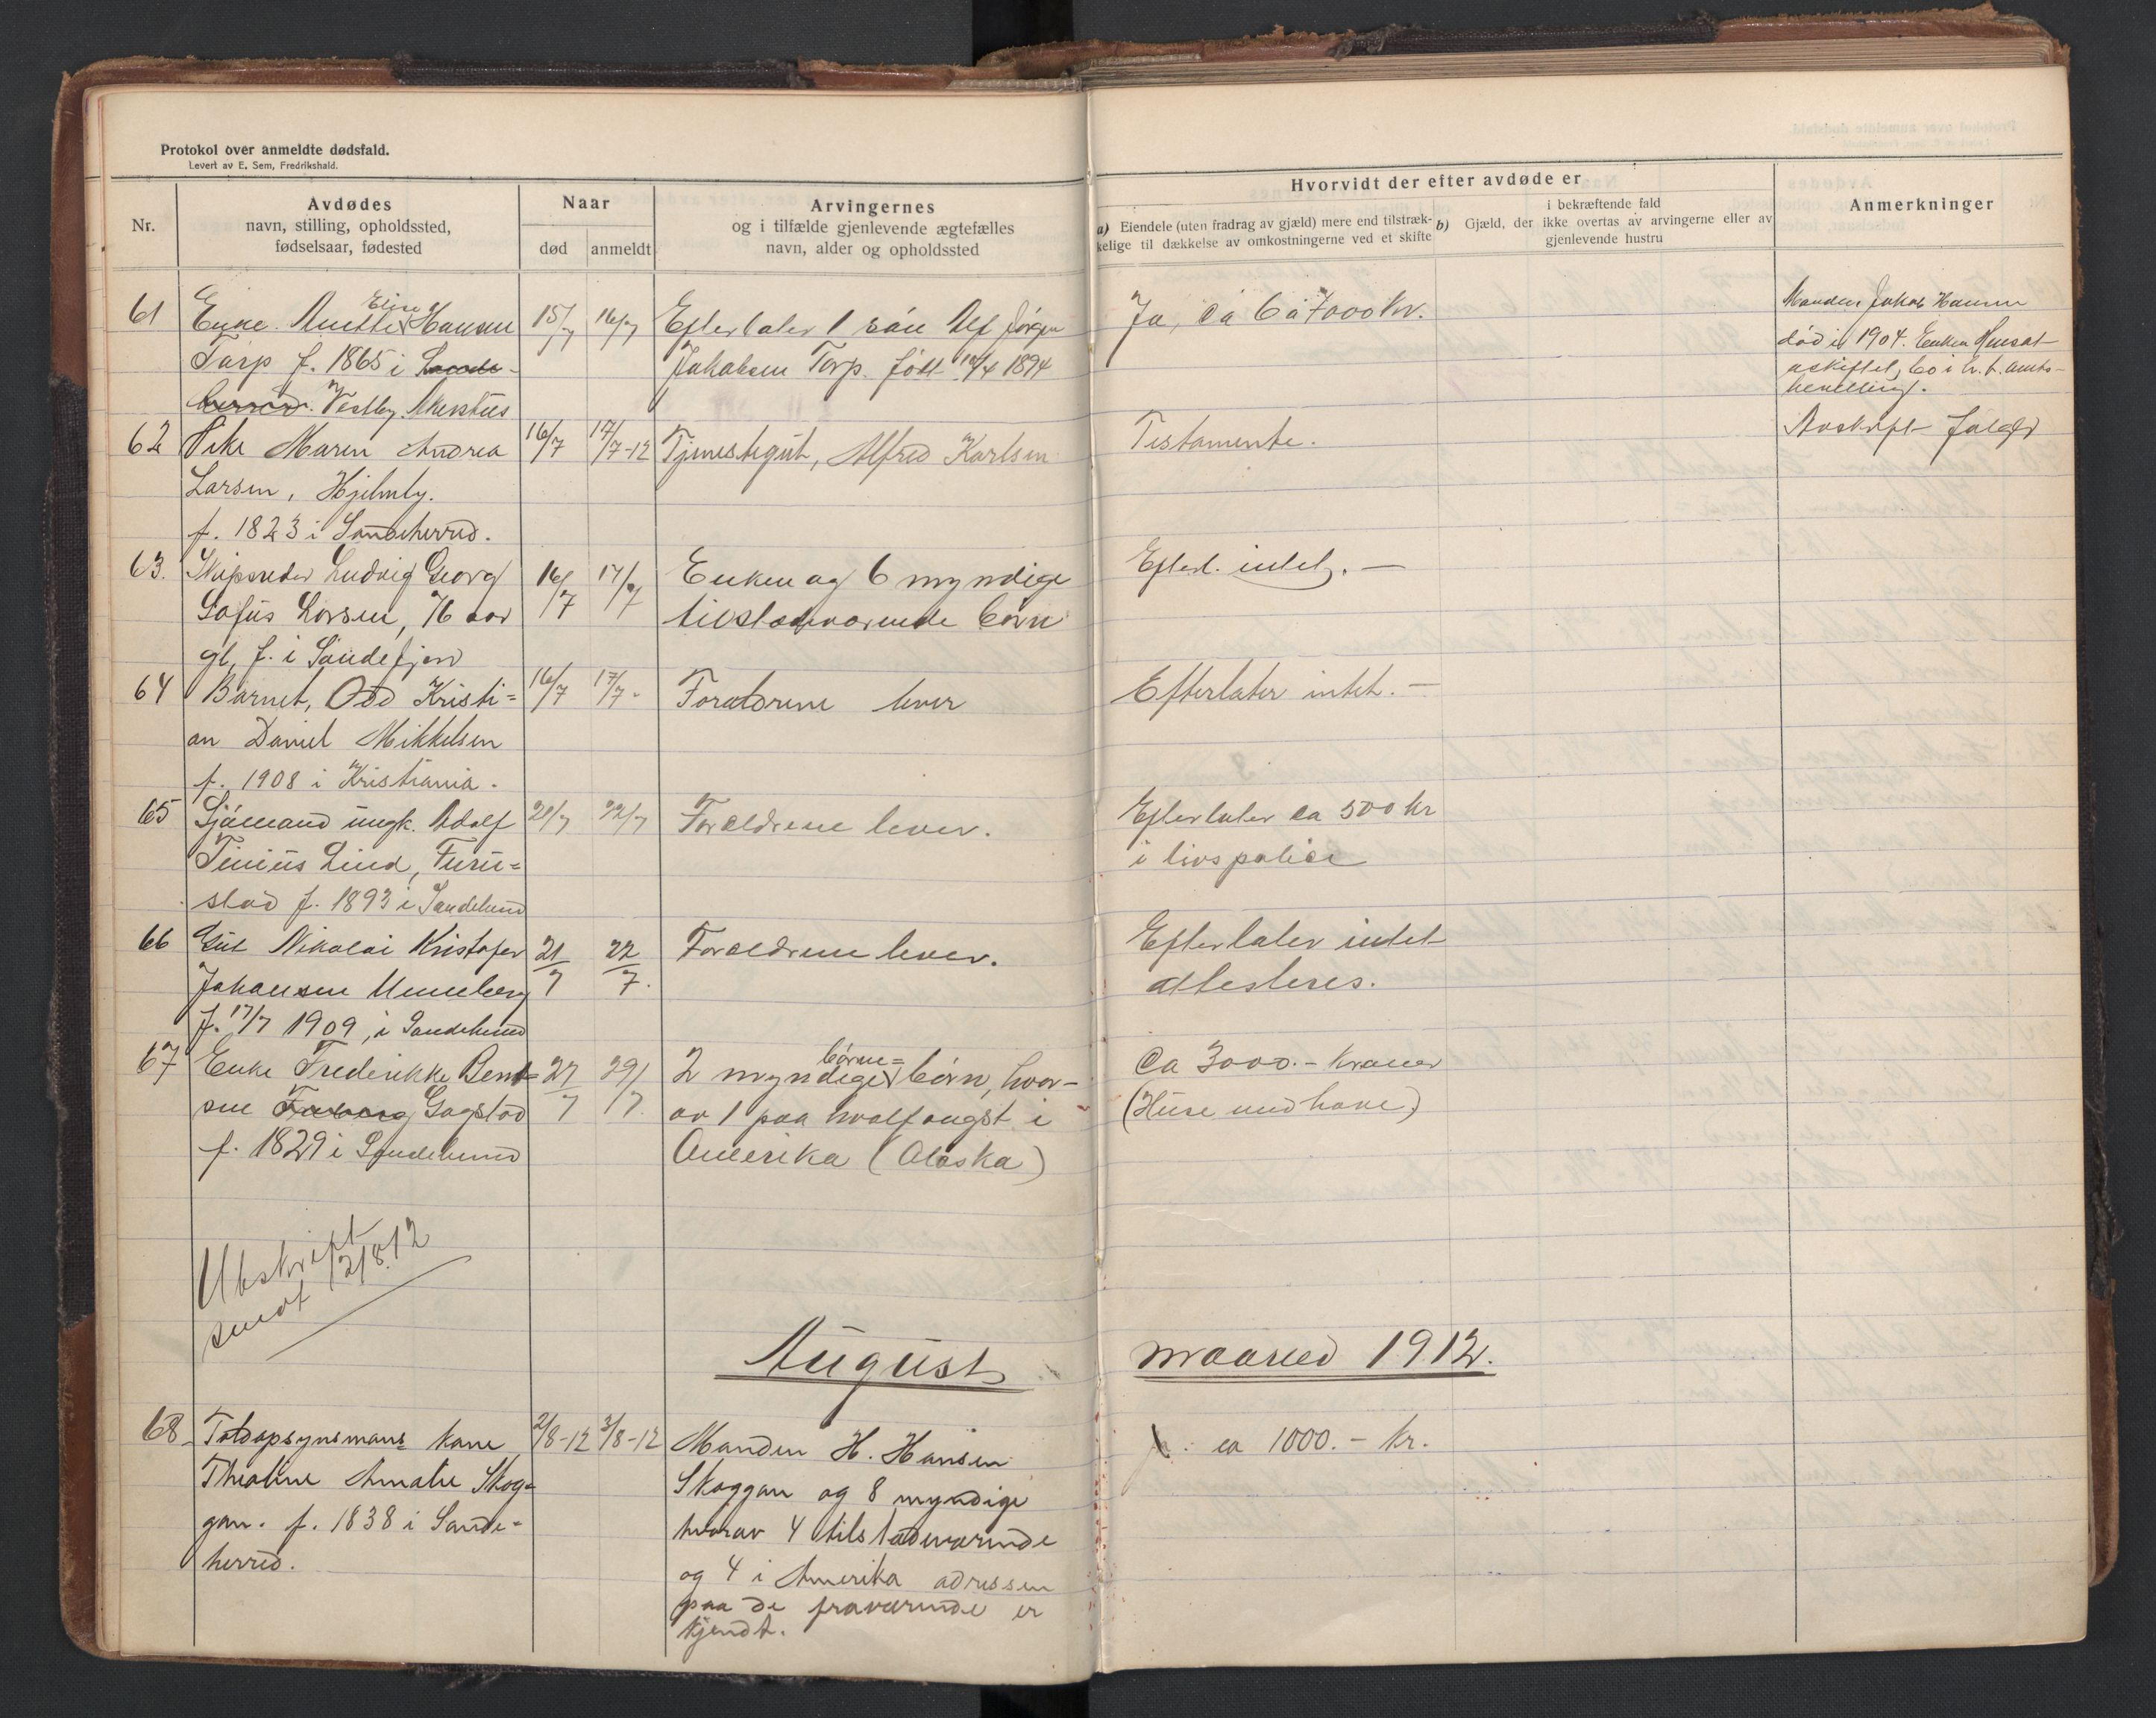 Protokol over anmeldte dødsfald.
Levert av E. Sem, Fredrikshald.
Nr.
Avdødes
navn, stilling, opholdssted,
fødselsaar, fødested
Naar
død
anmeldt
Arvingernes
og i tilfælde gjenlevende ægtefælles
navn, alder og opholdssted
Hvorvidt der efter avdøde er
a) Eiendele (uten fradrag av gjæld) mere end tilstræk-
kelige til dækkelse av omkostningerne ved et skifte
b) Gjæld, der
i bekræftende fald
ikke overtas av arvingerne eller av
gjenlevende hustru
Anmerkninger
61
Eline
Enke Anette Hansen
Torp f. 1865 i Sande-
herred. Vestby. Akershus
15/7
16/7
Efterlater 1 sön Alf Jörgen
Jakobsen Torp. født 12/4 1894
Ja, ca 6 à 7000 kr.
Manden Jakob Hansen
död i 1904. Enken hensat
uskiftet bo i h. t. amts-
bevilling.
Avskrift følger
62
Pike Maren Andrea
Larsen, Hjelmby.
f. 1823 i Sandeherred.
16/7
17/7-12
Tjenestegut, Alfred Karlsen
Testamente.
63.
Skipsreder Ludvig Georg
Sofus Larsen, 76 aar
gl, f. i Sandefjord
16/7
17/7
Enken og 6 myndige
tilstedeværende børn
Efterl. intet. —
64
Barnet, Odd Kristi=
an Daniel Mikkelsen
f. 1908 i Kristiania.
16/7
17/7-
Forældrene lever
Efterlater intet. —
65
Sjömand ungk. Adolf
Tinius Lind, Furu=
stad f. 1893 i Sandeherred
21/7
22/7
Forældrene lever.
Efterlater ca 500 kr
i livspolice
66
Gut Nikolai Kristofer
Johansen Unneberg
f. 17/7 1909, i Sandeherred
21/7
22/7.
Forældrene lever.
Efterlater intet
attesteres.
67
Enke Frederikke Bent=
sen Gogstad
f. 1829 i Sandeherred
27/7
29/7
börne=
2 myndige börn, hvor-
av 1 paa hvalfangst i
Amerika (Alaska)
Ca 3000.- kroner
(Huse med have)
Utskrift
sendt 12/8.12
August
maaned 1912.
68
Toldopsynsmans kone
Theoline Amalie Skog=
gan. f. 1838 i Sande=
herred.
2/8-12
3/8-12
Manden H. Hansen
Skoggan og 8 myndige
hvorav 4 tilstedeværende
og 4 i Amerika adressen
paa de fraværende er
kjendt.
ca 1000.- kr.